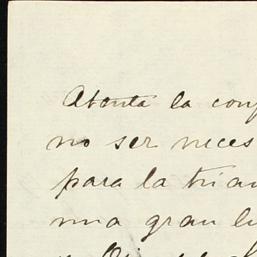 Atenta la conf
no ser neces
para la trian
una gran lu